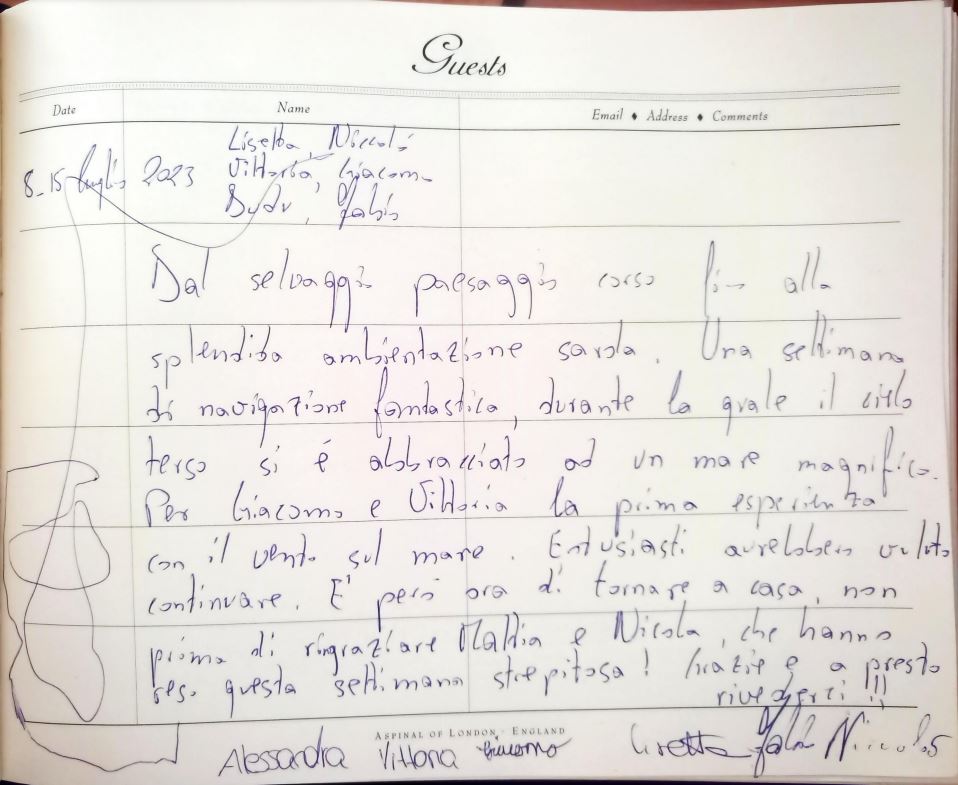 Guests
Date Name Email ♦ Address ♦ Comments
Lisetta, Niccolò
8-15 luglio 2023 Vittoria, Giacomo
Dudu, Fabio
Dal selvaggio paesaggio corso fino alla
splendida ambientazione sarda. Una settimana
di navigazione fantastica, durante la quale il cielo
terso si è abbracciato ad un mare magnifico.
Per Giacomo e Vittoria la prima esperienza
con il vento sul mare. Entusiasti avrebbero voluto
continuare. E' però ora di tornare a casa, non
prima di ringraziare Mattia e Nicola, che hanno
reso questa settimana strepitosa! Grazie e a presto
rivederci!!!
ASPINAL OF LONDON · ENGLAND
Alessandra Vittoria Giacomo Fabio Niccolò